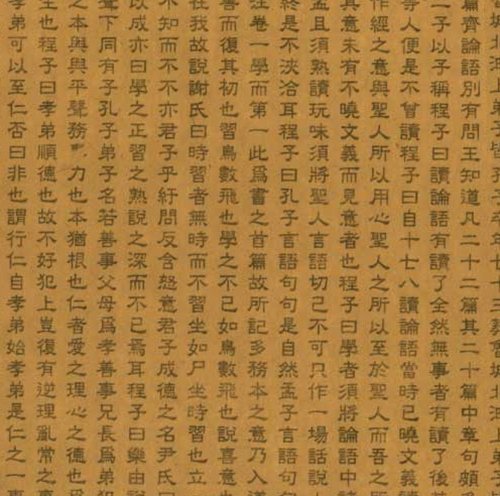 篇齊論語別有問王知道凡二十二篇其二十篇中章句頗
二子以子稱程子曰讀論語有讀了全然無事者有讀了後
等人便是不曾讀程子曰自十七八讀論語當時已曉文義
作經之意與聖人所以用心聖人之所以至於聖人而吾之
其意未有不曉文義而見意者也程子曰學者須將論語中
孟且須熟讀玩味須將聖人言語切己不可只作一場話說
終是不浹洽耳程子曰孔子言語句句是自然孟子言語句
注卷一學而第一此爲書之首篇故所記多務本之意乃入道
善而復其初也習鳥數飛也學之不已如鳥數飛也說喜意
在我故說謝氏曰時習者無時而不習坐如尸坐時習也立
不知而不不亦君子乎紆問反含怒意君子成德之名尹氏
以成亦曰學之正習之熟說之深而不已焉耳程子曰樂由說
聲下同有子孔子弟子名若善事父母爲孝善事兄長爲弟犯
之本與與平聲務力也本猶根也仁者愛之理心之德也爲
主也程子曰孝弟順德也故不好犯上豈復有逆理亂常之事
弟可以至仁否曰非也謂行仁自孝弟始孝弟是仁之一事